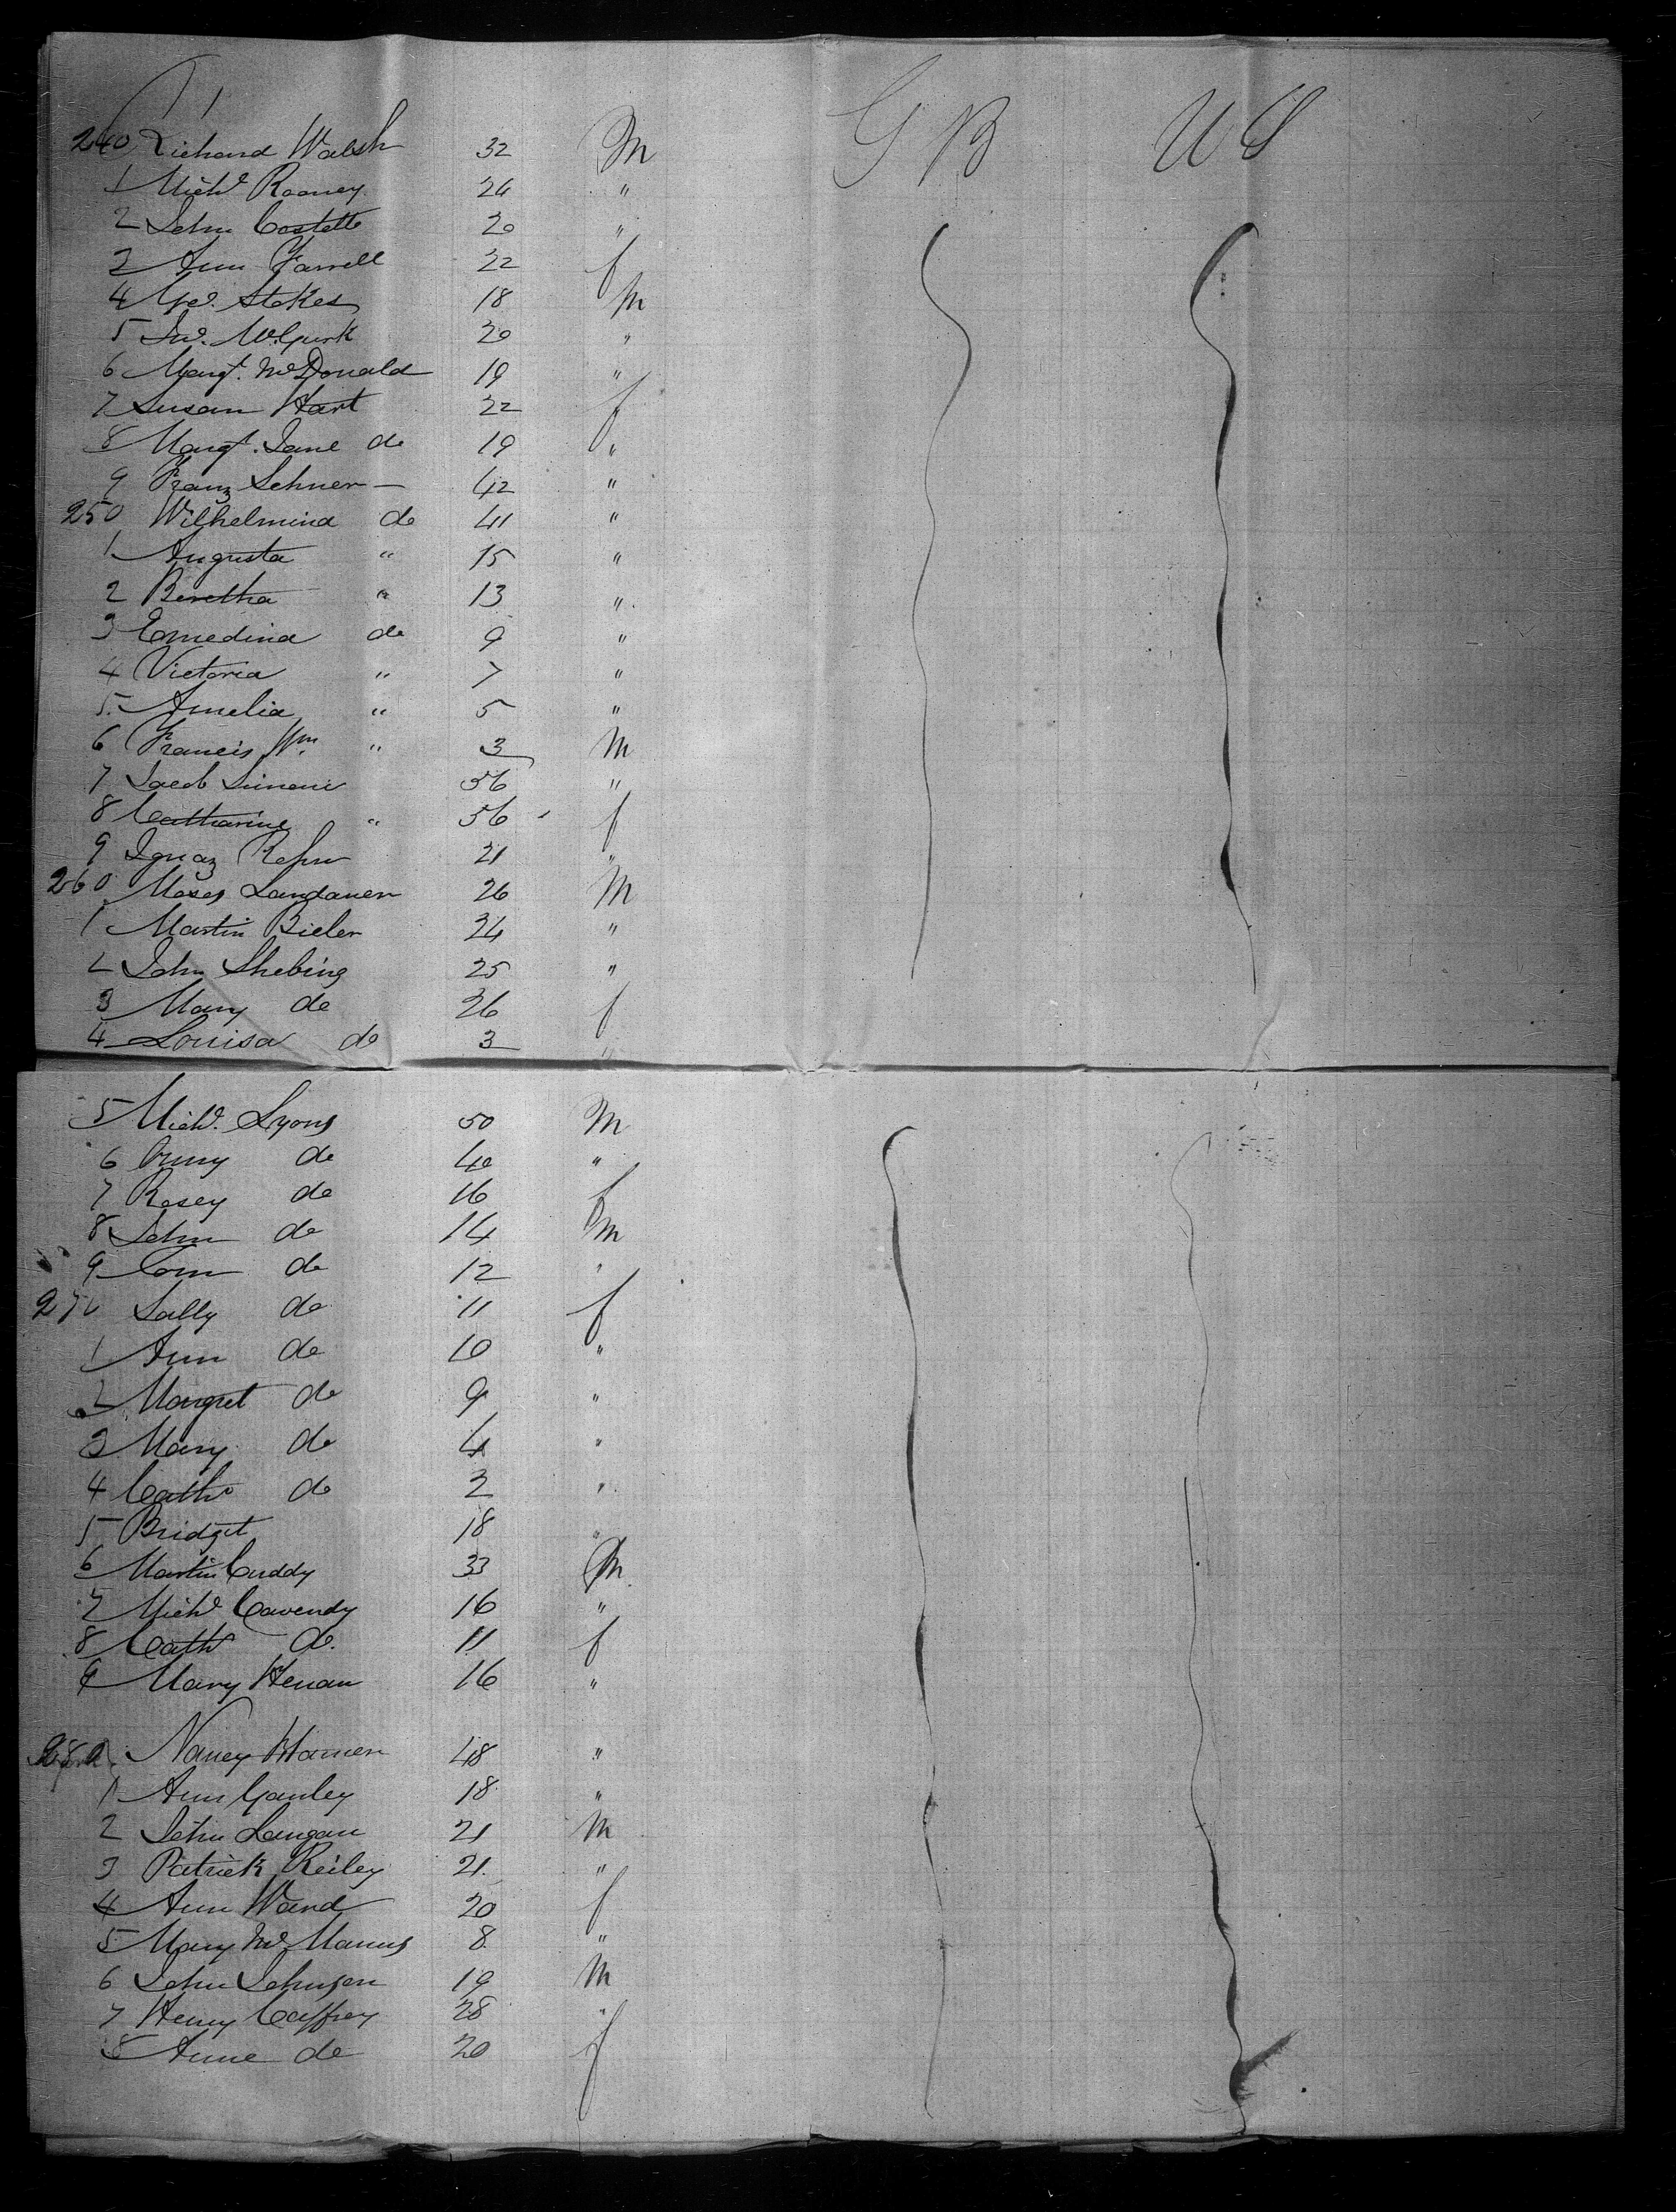 G B U S
240 Richard Walsh 32 M
1 Michl Rooney 24 "
2 John Costello 20 "
3 Ann Farrell 22 f
4 Geo. Stokes 18 M
5 Jno. McGurk 20 "
6 Margt. McDonald 19 "
7 Susan Hart 22 f
8 Margt. Jane do 19 "
9 Franz Lehner — 42 "
250 Wilhelmina do 41 "
1 Augusta " 15 "
2 Beretha " 13 "
3 Emedina do 9 "
4 Victoria " 7 "
5 Amelia " 5 "
6 Francis Wm " 3 M
7 Jacob Simoni 56 "
8 Catharine " 56 f
9 Ignaz 21 "
260 Moses Landauer 26 M
1 Martin Bieler 24 "
2 John Shebing 25 "
3 Mary do 26 f
4 Louisa do 3 "
5 Michl. Lyons 50 M
6 do 40 "
7 Rosey do 16 f
8 John do 14 M
9 Corn do 12 "
270 Sally do 11 f
1 Ann do 10 "
2 Margret do 9 "
3 Mary do 4 "
4 Cathe do 2 "
5 Bridget 18 "
6 Martin Cuddy 33 M
7 Michl Cavendy 16 "
8 Cathe do. 11 f
9 Mary Henan 16 "
280 Nancy Harner 48 "
1 Ann Ganley 18 "
2 John Langan 21 M
3 Patrick Reiley 21 "
4 Ann Ward 20 f
5 Mary McManus 8 "
6 John Johnson 19 M
7 Henry Caffrey 28 "
8 Anne do 20 f